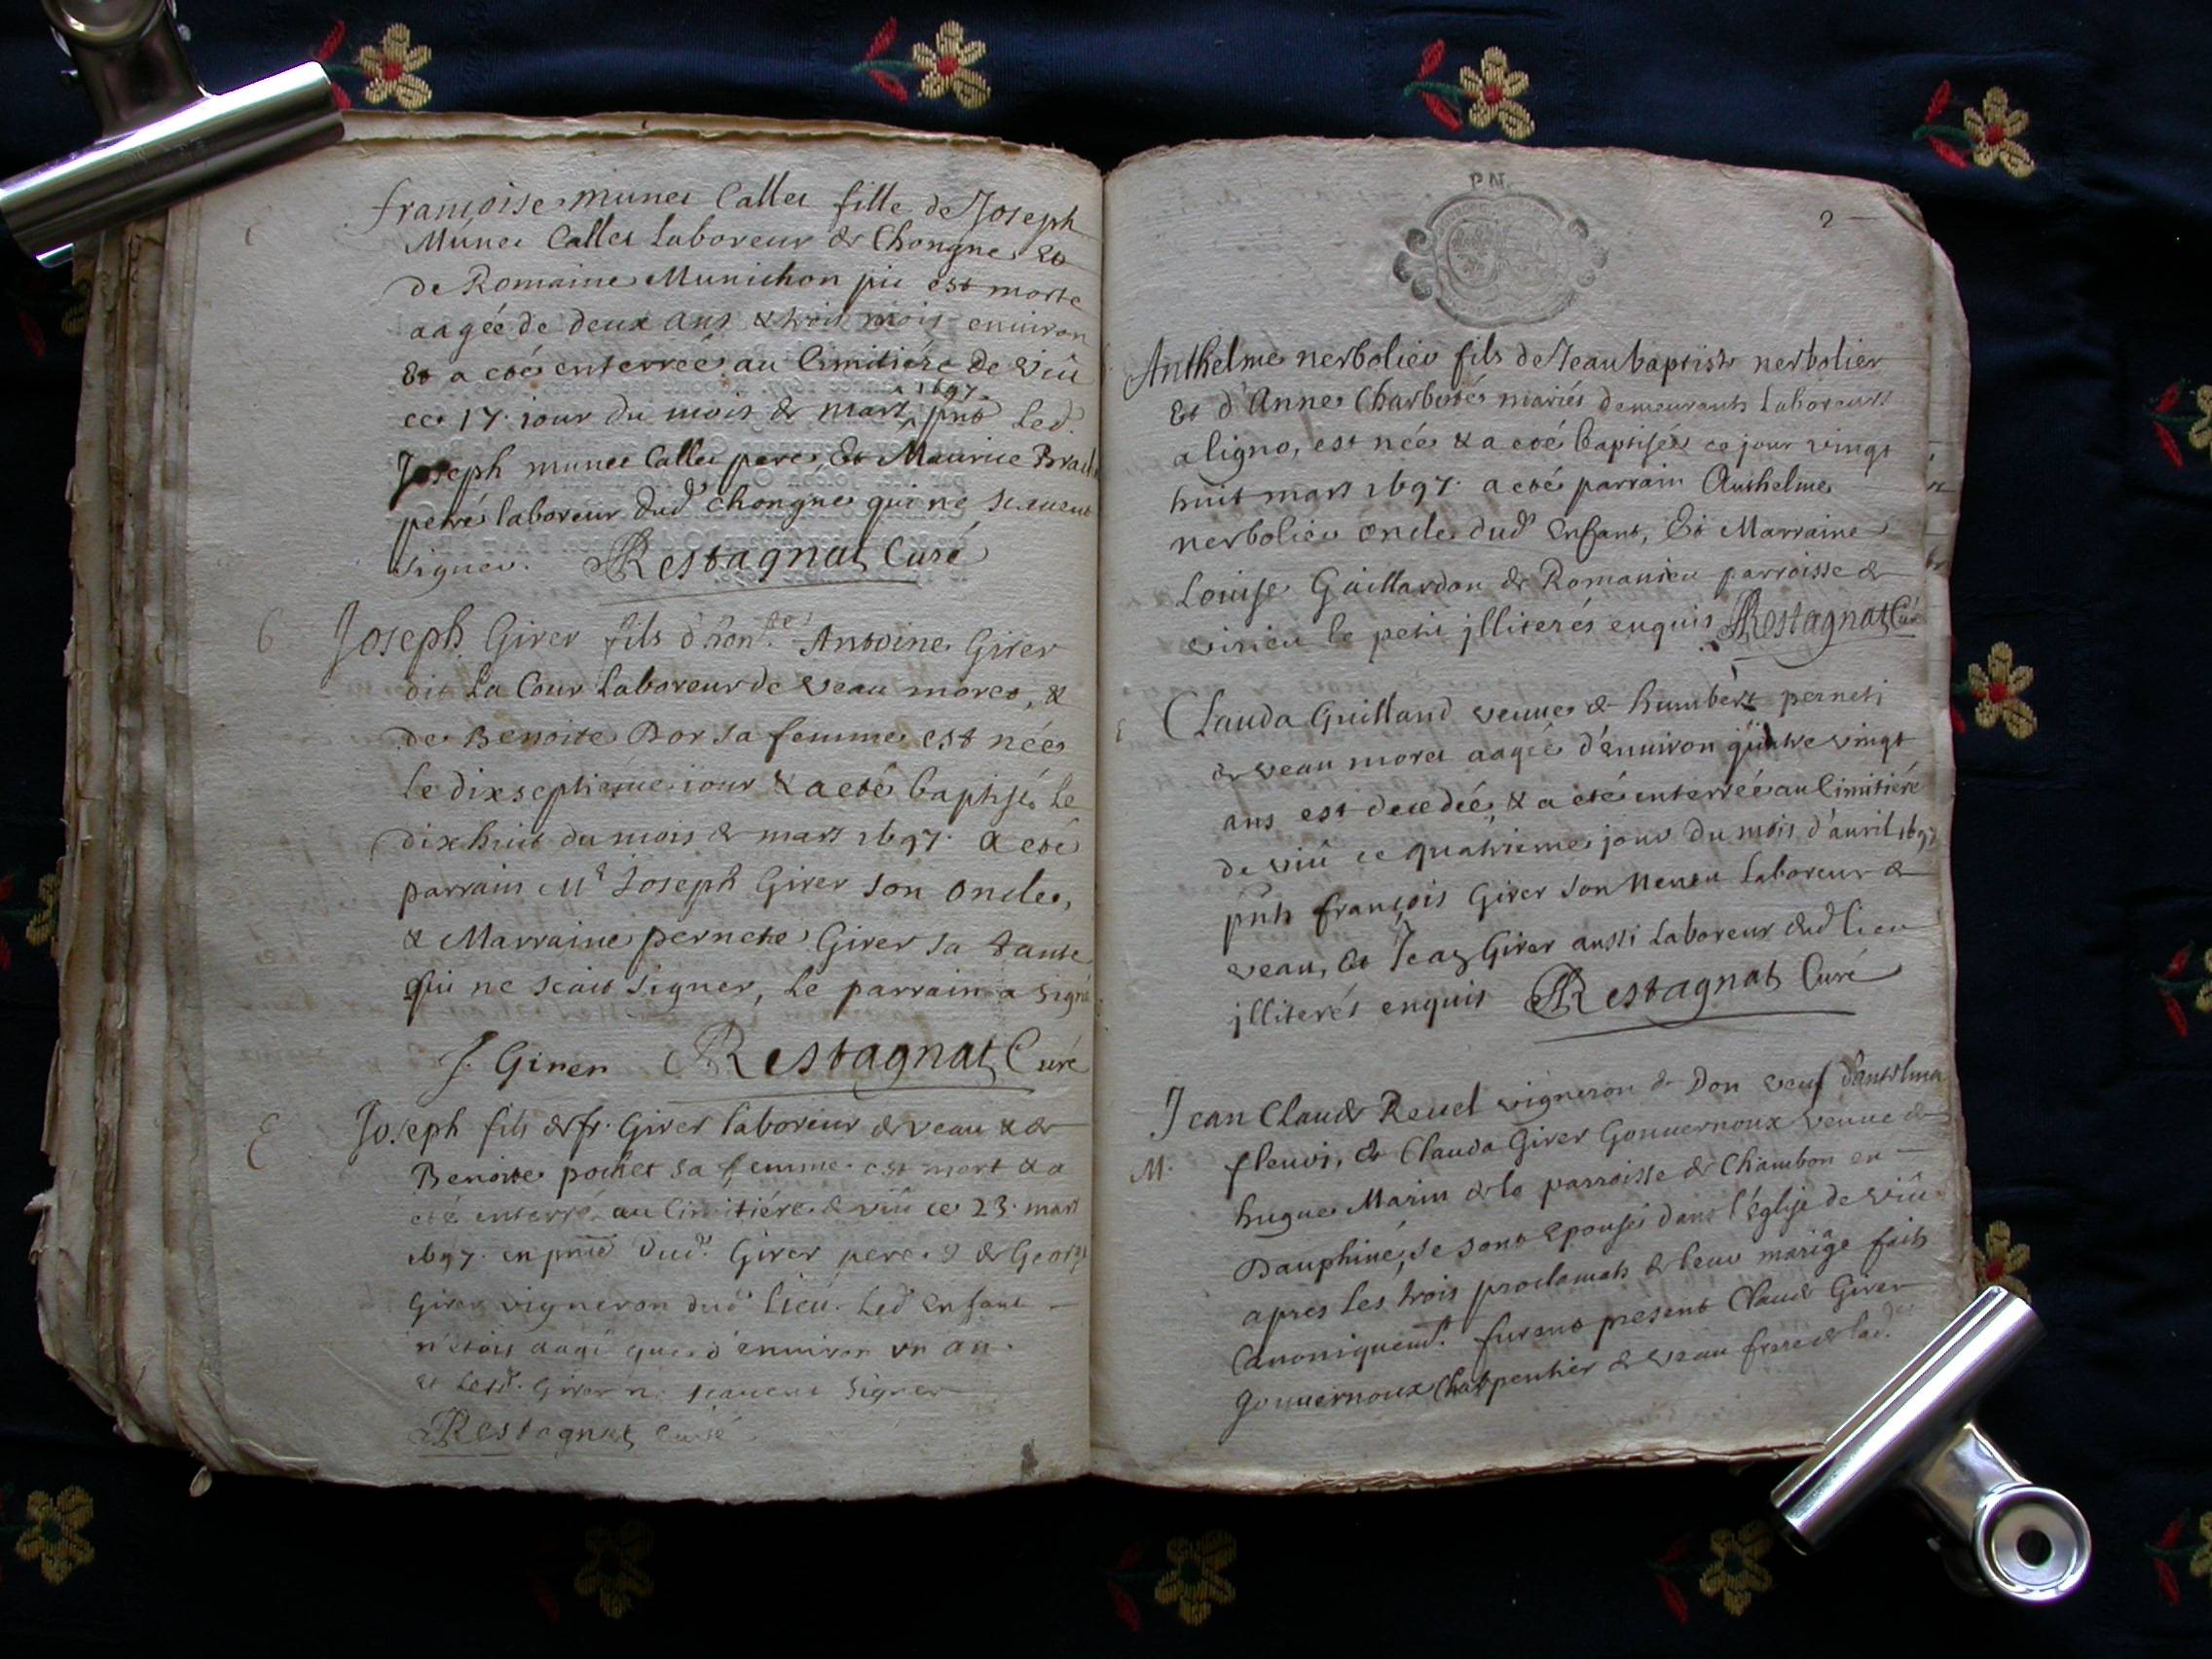 françoise munet Callet fille de Joseph
Munet Callet Laboreur de Chongne Et
de Romaine Munichon pie est morte
aagée de deux ans & trois mois environ
Et a eté enterreé au Cimitiére De Viû
1697.
ce 17. jour du mois de mars pnt Led.
Joseph munet Callet pere, Et Maurice
laboreur dud. Chongne qui ne scavent
signer. Restagnat Curé
6 Joseph Girer fils d'hon.ble Antoine Girer
dit La Cour Laboreur de Veau moret, &
de Benoite Dor sa femme est née
le dixseptiéme jour & a eté baptisé Le
dixhuit du mois de mars 1697. a eté
parrain Mr Joseph Girer son Oncle,
& Marraine pernete Girer sa tante
qui ne scait signer, Le parrain a signé
J. Girer Restagnat Curé
E Joseph fils de fr. Girer laboreur de Veau & de
Benoite pochet sa femme est mort & a
eté enterré au Cimitiére de viû ce 23. mars
1697. en pnce dud. Girer pere & de George
Girer vigneron dud. lieu. Led. Enfant
n'etoit aagé que d'environ un an.
et Lesd. Girer ne scavent signer
Restagnat Curé
PN.
2
Anthelme nerbolier fils de Jeanbaptiste nerbolier
Et d'Anne Charbotés mariés demeurants Laboreurs
a ligno, est née & a eté baptisée ce jour vingt
huit mars 1697. a eté parrain Anthelme
nerbolier Oncle dud. Enfant, Et Marraine
Louise Gaillardon de Romanieu parroisse de
virieu le petit jlliterés enquis Restagnat Curé
E Clauda Guilland veuve de humbert perneti
de veau moret aagée d'environ quatre vingt
ans est decedée, & a eté enterreé au Cimitiére
de viû ce quatriéme jour du mois d'avril 1697
pnts françois Girer son Neveu Laboreur de
veau, Et Jean Girer aussi Laboreur dud. lieu
jlliterés enquis Restagnat Curé
Jean Claude Revel vigneron de Don veuf d'Anthelma
M. fleuri, & Clauda Girer Gouvernoux veuve de
hugue Marin de la parroisse de Chambon en
Dauphiné, se sont epousés dans l'églisse de viû
apres les trois proclamats de leur mariage faits
Canoniquemt. furent present Claude Girer
Gouvernoux Charpentier de veau frere de lad.